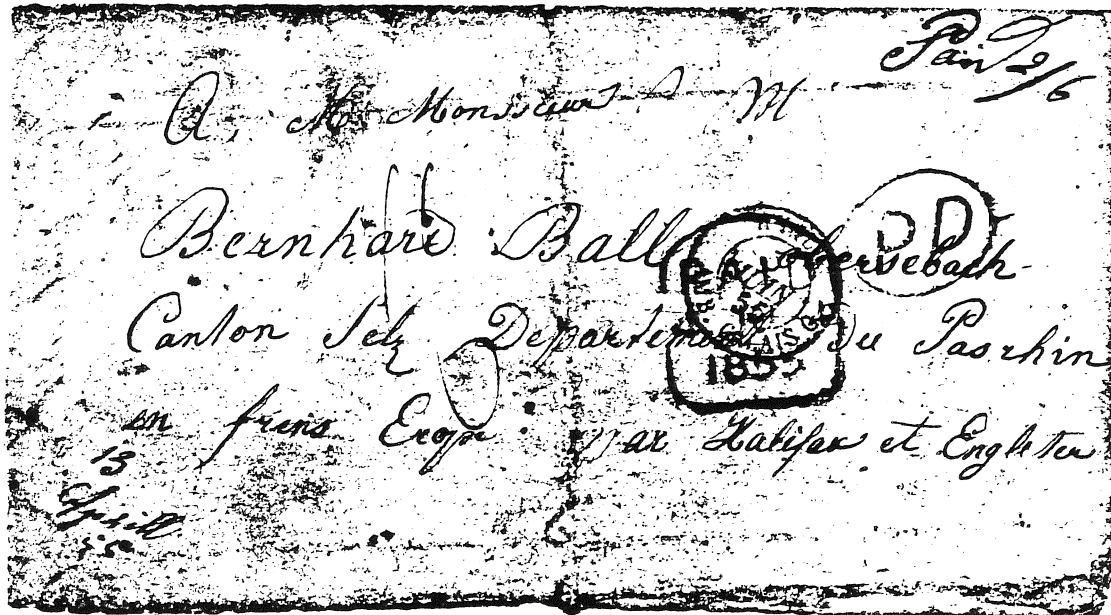 Paid 2/6
A. M. Monssieur M
PD
Bernhard Ball obersebach
Canton Selz Departement Du Pasrhin
1855
en frens Erope par Halifax et Engleter
13
Aphill